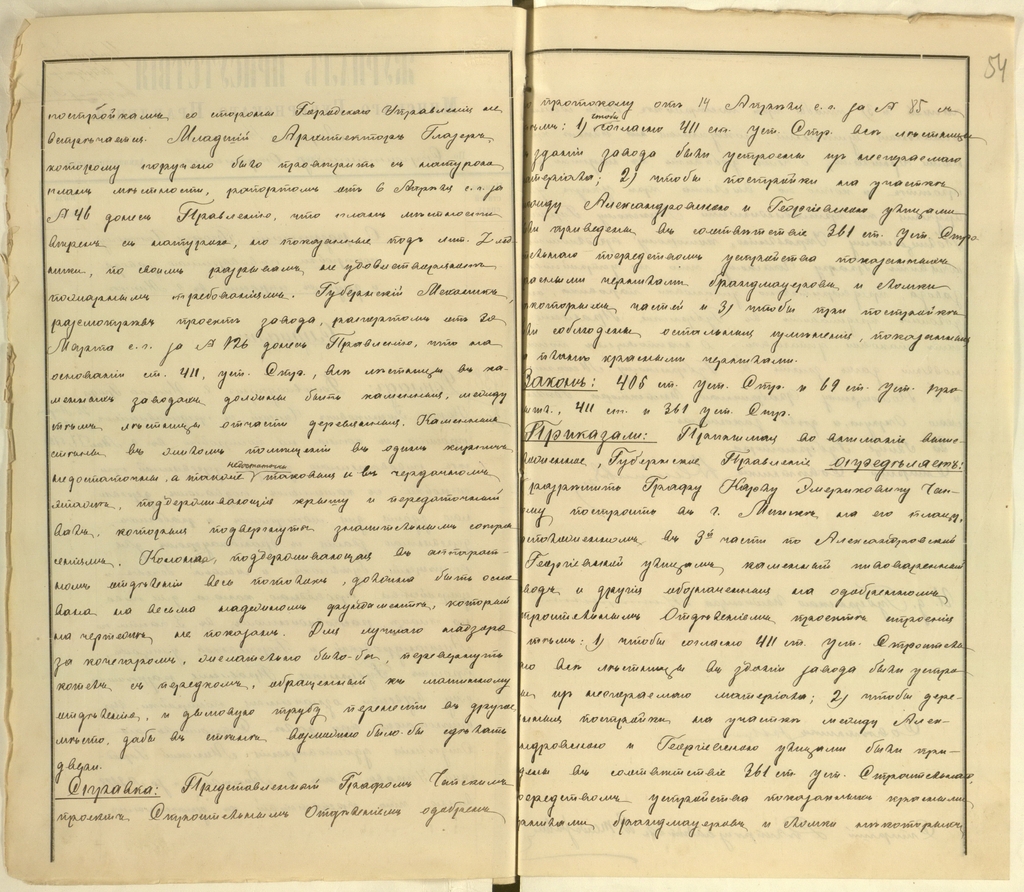 постройкамъ со стороны Городского Управленія не
встрѣчается. Младшій Архитекторъ Глазеръ,
которому поручено было провѣрить съ натурою
планъ мѣстности, рапортомъ отъ 6 Апрѣля с. г. за
№ 46 донесъ Правленію, что планъ мѣстности
вѣренъ съ натурою, но показанные подъ лит.
по своимъ разрывамъ не удовлетворяютъ
пожарнымъ требованіямъ. Губернскій Механикъ,
разсмотрѣвъ проектъ завода, рапортомъ отъ 20
Марта с. г. за № 126 донесъ Правленію, что на
основаніи ст. 411, уст. Стр., всѣ лѣстницы въ ка-
менныхъ заводахъ должны быть каменныя, между
тѣмъ лѣстницы отчасти деревянныя. Каменныя
стѣны въ жиломъ помѣщеніи въ одинъ кирпичъ
недостаточны, а также недостаточны таковыя и въ чердачномъ
этажѣ, поддерживающія крышу и передаточный
валъ, которыя подвергнуты значительнымъ сотря-
сеніямъ. Колонна, поддерживающая въ аппарат-
номъ отдѣленіи весь потолокъ, должна быть осно-
вана на весьма надежномъ фундаментѣ, который
на чертежѣ не показанъ. Для лучшаго надзора
за кочегаромъ, желательно было-бы, перевернуть
котелъ съ передкомъ, обращеннымъ къ машинному
отдѣленію, и дымовую трубу перенести въ другое
мѣсто, дабы въ стѣнкѣ возможно было-бы сдѣлать
двери.
Справка: Представленный Графомъ Чапскимъ
проектъ Строительнымъ Отдѣленіемъ одобренъ
54
протоколу отъ 14 Апрѣля с. г. за № 85 съ
тѣмъ: 1) чтобы согласно 411 ст. уст. Стр. всѣ лѣстницы
зданіи завода были устроены изъ несгораемаго
теріала; 2) чтобы постройки на участкѣ
ежду Александровскою и Георгіевскою улицами
ли приведены въ соотвѣтствіе 361 ст. Уст. Стро
ельнаго посредствомъ устройства показанныхъ
расными чернилами брандмауеровъ и сломки
которыхъ частей и 3) чтобы при постройкѣ
ли соблюдены остальныя измѣненія, показанныя
планѣ красными чернилами.
Законъ: 406 ст. Уст. Стр. и 69 ст. уст. про
411 ст. и 361 уст. Стр.
Приказали: Принимая во вниманіе выше-
ложенное, Губернское Правленіе опредѣляетъ:
разрѣшить Графу Карлу Эмериковичу Чап-
му построить въ г. Минскѣ на его плацу,
сположенномъ въ 3й части по Александровской
Георгіевской улицамъ каменный пивоваренный
водъ и другія обозначенныя на одобренномъ
троительнымъ Отдѣленіемъ проектѣ строенія
тѣмъ: 1) чтобы согласно 411 ст. уст. Строитель
го всѣ лѣстницы въ зданіи завода были устро
ны изъ несгораемаго матеріала; 2) чтобы дере-
янныя постройки на участкѣ между Алек-
ндровскою и Георгіевскою улицами были при-
дены въ соотвѣтствіе 361 ст. уст. Строительнаго
осредствомъ устройства показанныхъ красными
рнилами брандмауеровъ и сломки нѣкоторыхъ